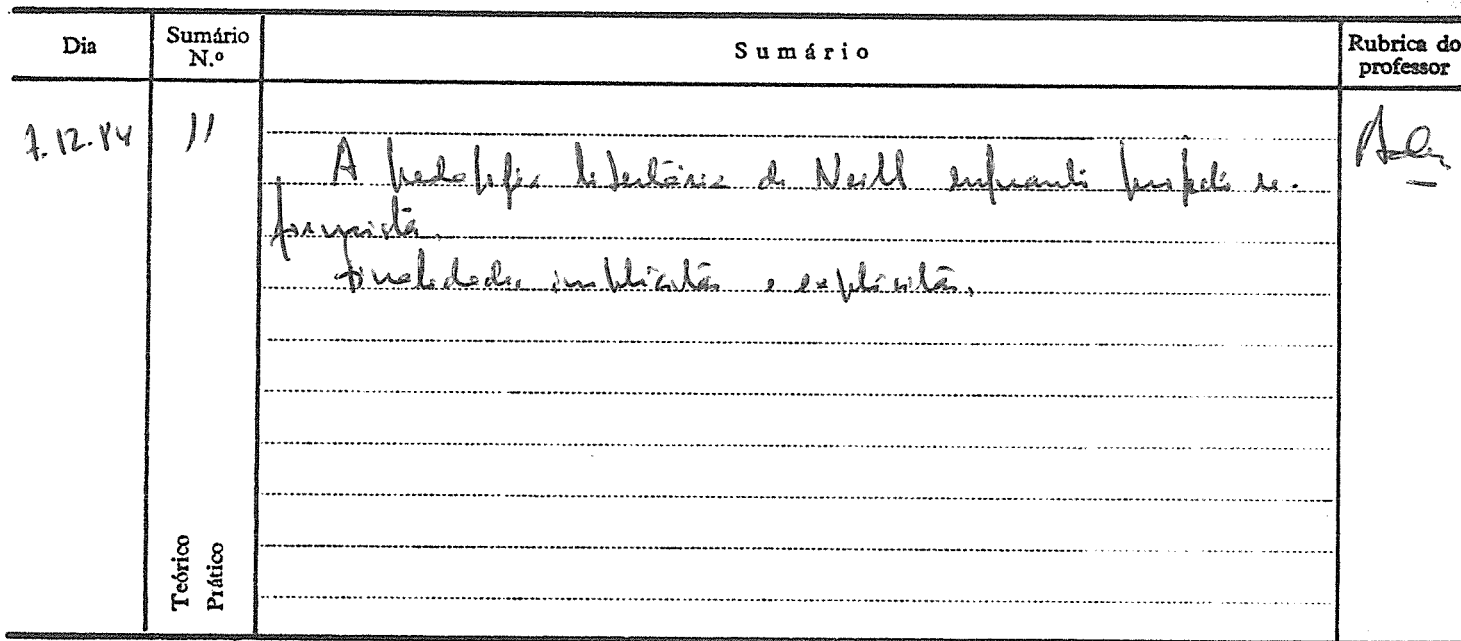 Dia
Sumário N.º
Sumário
Rubrica do professor
7.12.84
11
A pedagogia libertária de Neill enquanto projecto re-
formista.
Finalidades implícitas e explícitas.
Teórico
Prático